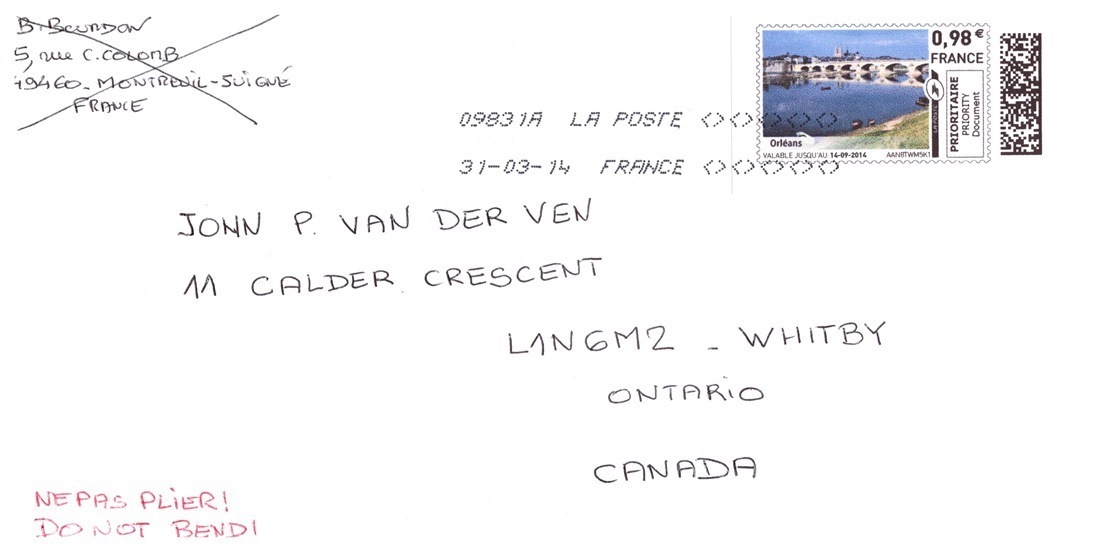 B. BOURDON
5, rue C. COLOMB
49460 - MONTREUIL-JUIGNÉ
FRANCE
0,98 €
FRANCE
PRIORITAIRE
PRIORITY
Document
LA POSTE
Orléans
VALABLE JUSQU'AU 14-09-2014 AAN8TWM5K1
09831A LA POSTE
31-03-14 FRANCE
JOHN P. VAN DER VEN
11 CALDER CRESCENT
L1N6M2 - WHITBY
ONTARIO
CANADA
NE PAS PLIER!
DO NOT BEND!